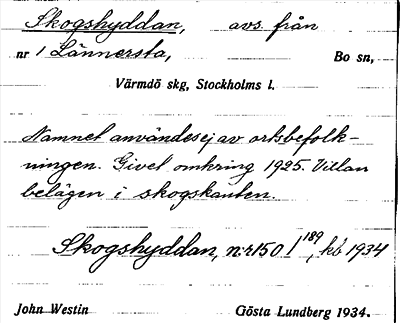 Skogshyddan, avs. från
nr 1 Lännersta, Bo sn,
Värmdö skg, Stockholms l.
Namnet användes ej av ortsbefolk-
ningen. Givet omkring 1925. Villan
belägen i skogskanten.
Skogshyddan, n:r 150 1/189, kb 1934
John Westin Gösta Lundberg 1934.